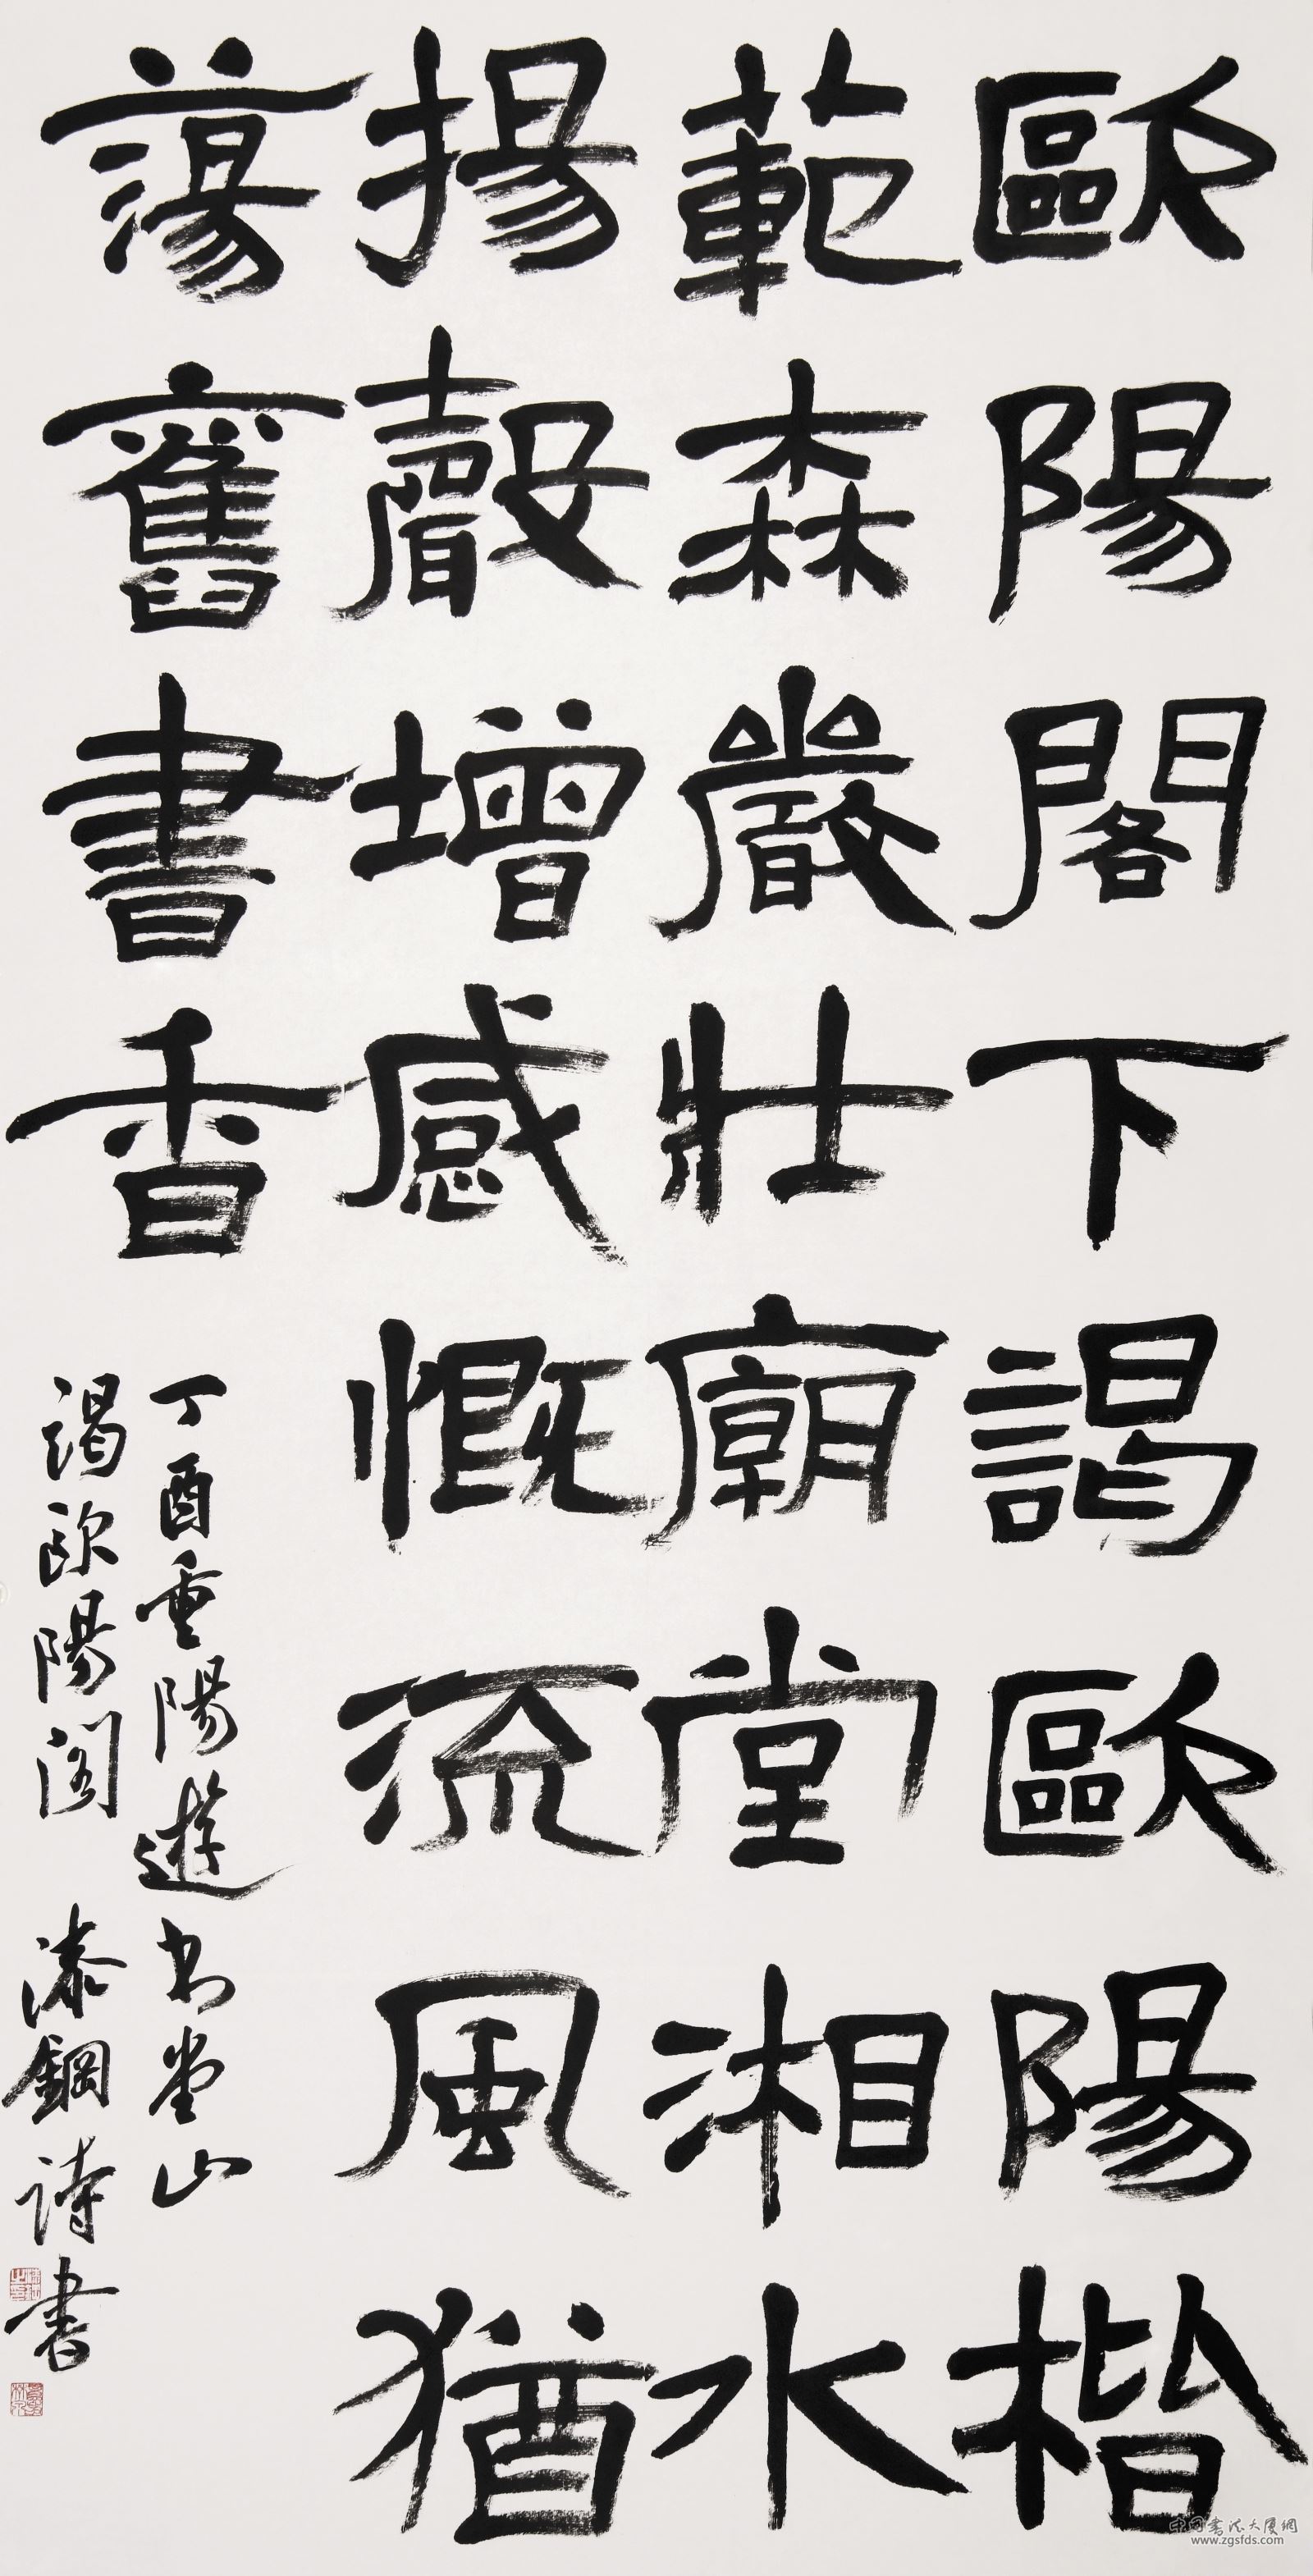 歐陽閣下謁歐陽楷
範森嚴壯廟堂湘水
揚聲增感慨流風猶
蕩舊書香
丁酉重陽遊书堂山
謁歐陽阁 漆鋼诗書
中国書法大厦網
www.zgsfds.com